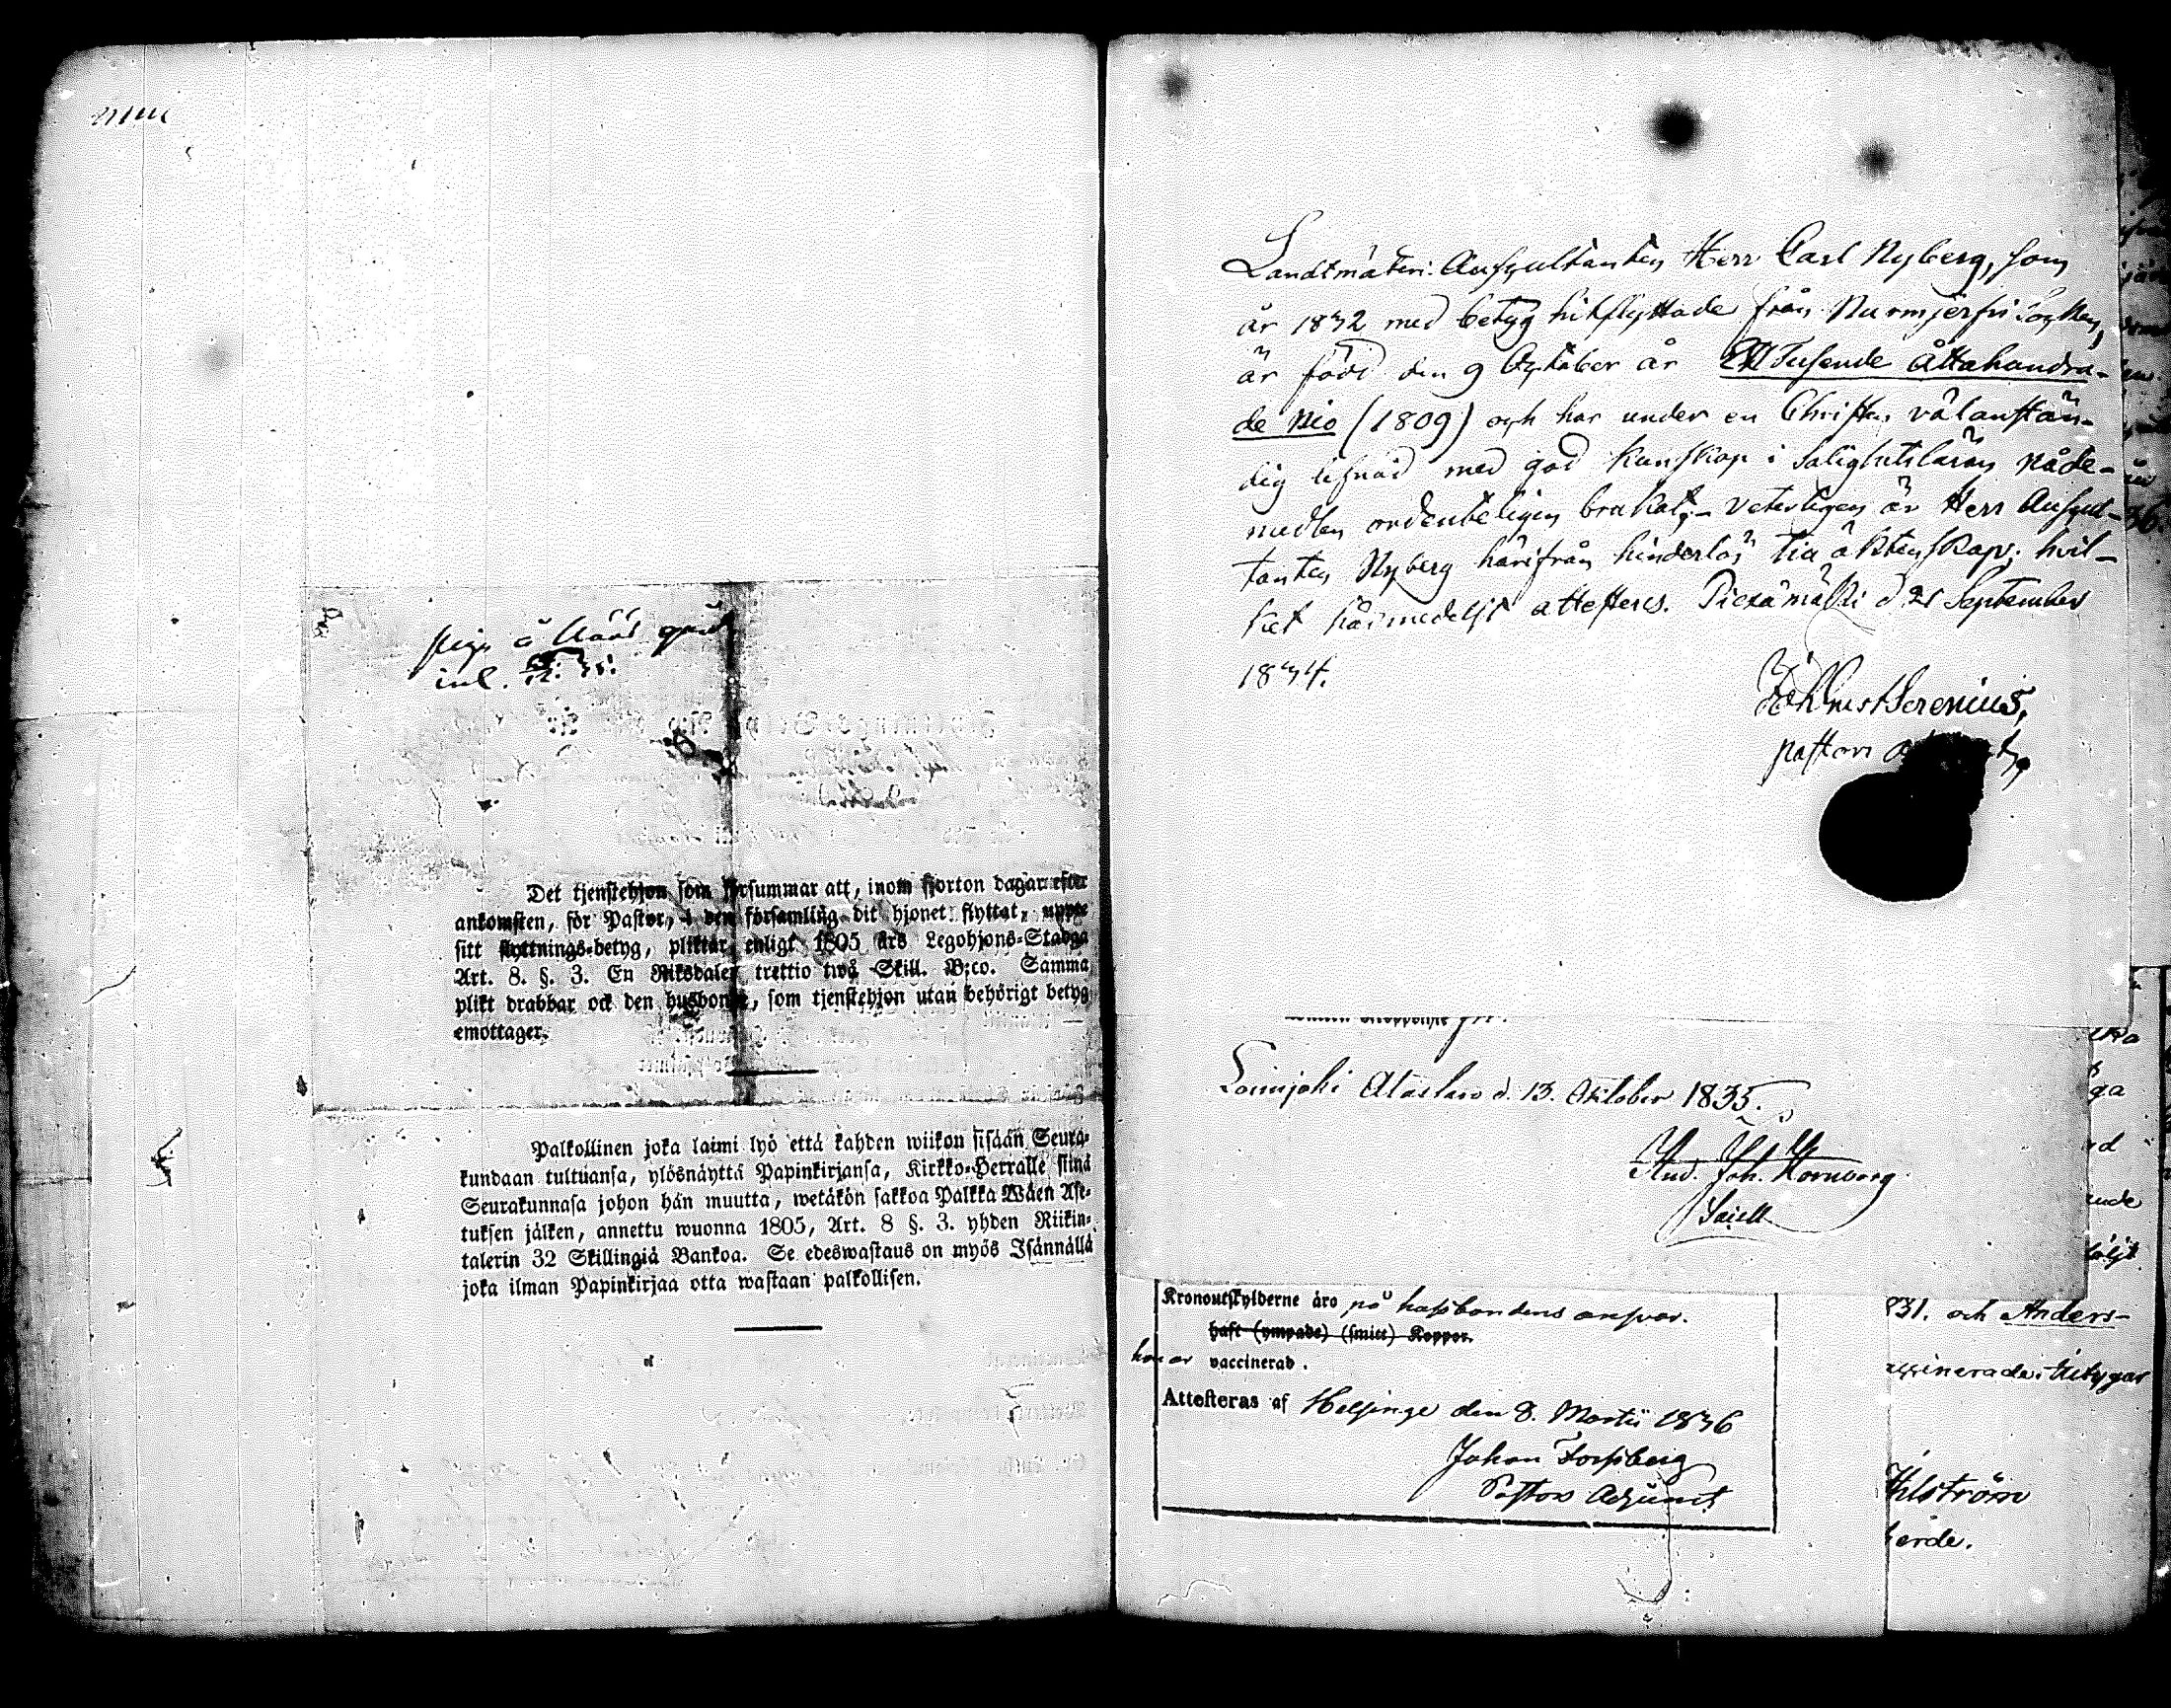 inl.
Det tjenstehjon som försummar att, inom fjorton dagar efter
ankomsten, för Pastor, i den församling dit hjonet flyttat, uppte
sitt flyttnings-betyg, pliktar enligt 1805 års Legohjons-Stadga
Art. 8. §. 3. En Riksdaler trettio två Skill. B:co. Samma
plikt drabbar ock den husbonde, som tjenstehjon utan behörigt betyg
emottager.
Palkollinen joka laimi lyö että kahden wiikon sisään Seura-
kundaan tultuansa, ylösnäyttä Papinkirjansa, Kirkko-Herralle siinä
Seurakunnasa johon hän muutta, wetäkön sakkoa Palkka Wäen Ase-
tuksen jälken, annettu wuonna 1805, Art. 8 §. 3. yhden Riikin-
talerin 32 Skillingiä Bankoa. Se edeswastaus on myös Isännällä
joka ilman Papinkirjaa otta wastaan palkollisen.
Landtmäteri Auscultanten Herr Carl Nyberg, som
år 1832 med betyg hitflyttade från Nurmijerfvi Socken,
är född den 9 October år Ett Tusende Åttahundra-
de Nio (1809) och har under en Christen välanstän-
dig lefnad med god kunskap i Salighetsläran Nåde-
medlen ordenteligen brukat; veterligen är Herr Auscul-
tanten Nyberg härifrån hinderlös till äktenskap; hvil-
ket härmedelst attesteres. Piexämäki d 21 September
1834.
Joh. Ernst Serenius,
pastors
Loimjoki Alastaro d. 13. October 1835.
And. Joh. Hornborg
Sacell.
Kronoutskylderne äro på husbondens ansvar.
haft (ympade) (smitt) Koppor.
hon är vaccinerad.
Attesteras af Helsinge den 8. Martii 1836
Johan Forssberg
Pastors Adjunct
831. och Anders-
erde.